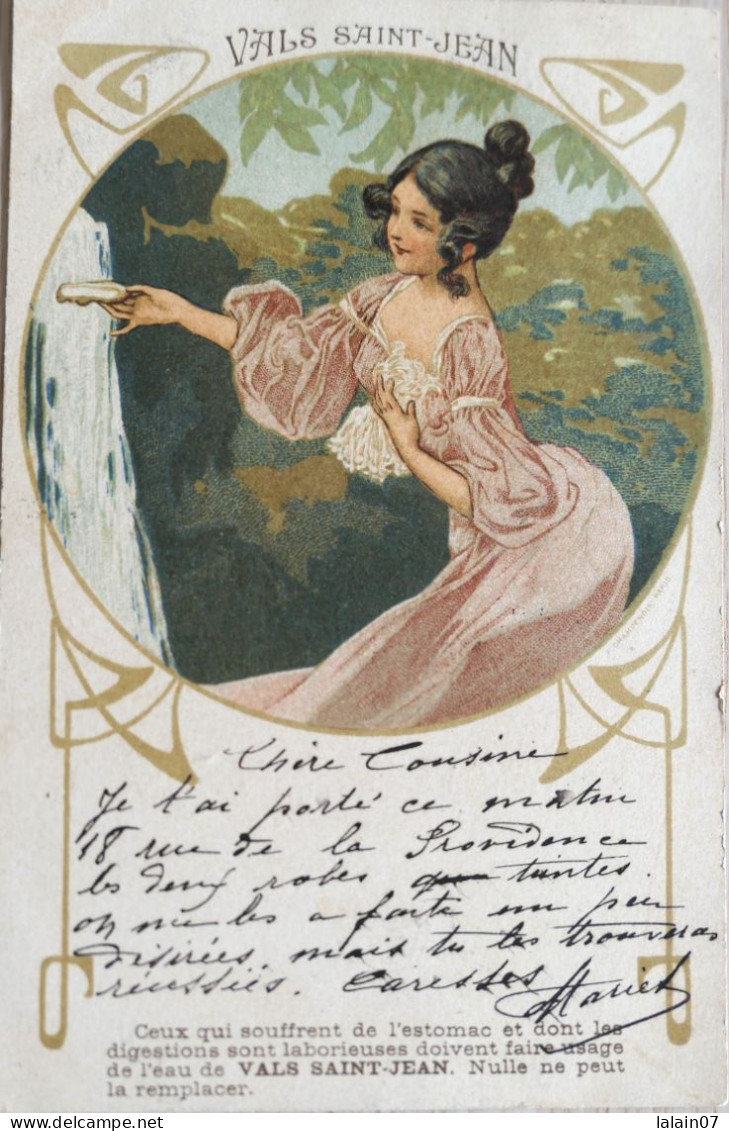 VALS SAINT-JEAN
Chère Cousine
Je t'ai porté ce matin
18 rue de la Providence
les deux robes teintes.
on me les a faite un peu
désirées, mais tu les trouveras
réussies. Caresses
Ceux qui souffrent de l'estomac et dont les
digestions sont laborieuses doivent faire usage
de l'eau de VALS SAINT-JEAN. Nulle ne peut
la remplacer.
lalain07
Delcampe.net